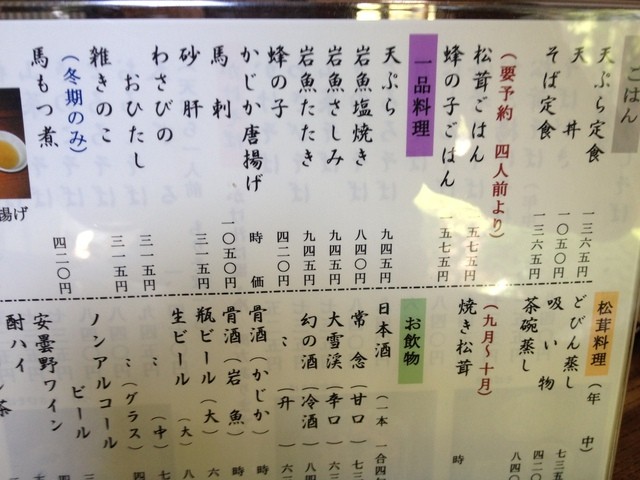 ごはん
天ぷら定食 一三六五円
天丼 一〇五〇円
そば定食 一三六五円
(要予約 四人前より)
松茸ごはん 一五七五円
蜂の子ごはん 一五七五円
一品料理
天ぷら 九四五円
岩魚塩焼き 八四〇円
岩魚さしみ 九四五円
岩魚たたき 九四五円
蜂の子 四二〇円
かじか唐揚げ 時価
馬刺 一〇五〇円
砂肝 三一五円
わさびの
おひたし 三一五円
雑きのこ 三一五円
(冬期のみ)
馬もつ煮 四二〇円
揚げ
松茸料理 (年中)
どびん蒸し 七三五
吸い物 四二〇
茶碗蒸し 八四〇
(九月〜十月)
焼き松茸 時
お飲物
日本酒 (一本 一合
常念(甘口) 七三
大雪渓(辛口) 八四
幻の酒(冷酒)
〃 (升)
骨酒(かじか) 時
骨酒(岩魚) 時
瓶ビール(大) 六
生ビール (大) 八
〃 (中) 七
〃 (グラス) 四
ノンアルコール
ビール
安曇野ワイン
酎ハイ